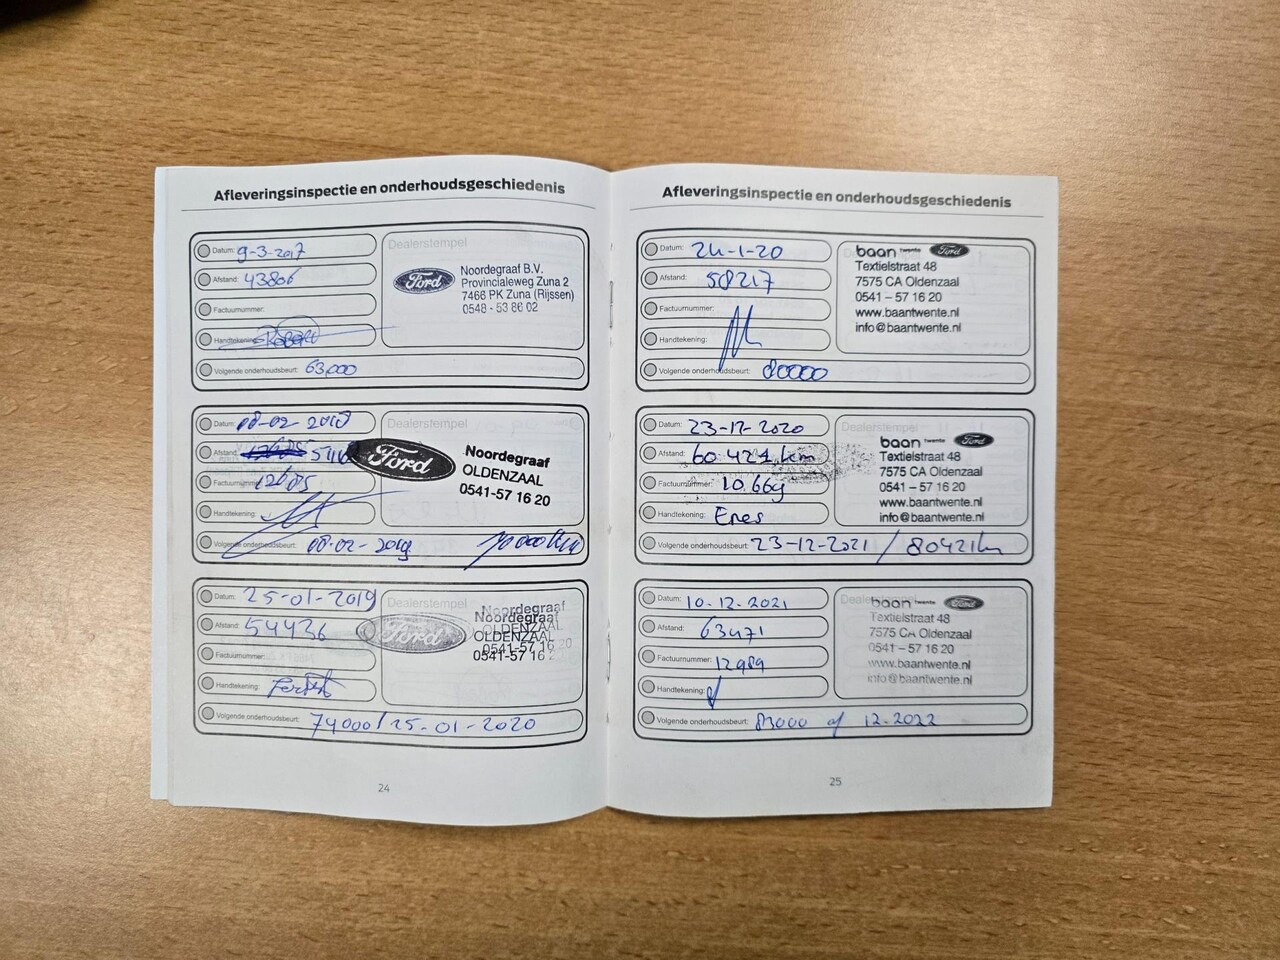 Afleveringsinspectie en onderhoudsgeschiedenis
Datum: 9-3-2017
Afstand: 43806
Factuurnummer:
Handtekening:
Volgende onderhoudsbeurt: 63,000
Dealerstempel
Ford
Noordegraaf B.V.
Provincialeweg Zuna 2
7466 PK Zuna (Rijssen)
0548 - 53 86 02
Datum: 08-02-2018
Afstand:
Factuurnummer: 12685
Handtekening:
Volgende onderhoudsbeurt: 08-02-2019 70000km
Dealerstempel
Ford
Noordegraaf
OLDENZAAL
0541-57 16 20
Datum: 25-01-2019
Afstand: 54436
Factuurnummer:
Handtekening:
Volgende onderhoudsbeurt: 74000/25-01-2020
Dealerstempel
Ford
Noordegraaf
Noordegraaf
OLDENZAAL
OLDENZAAL
0541-57 16 20
0541-57 16 2
24
Afleveringsinspectie en onderhoudsgeschiedenis
Datum: 24-1-20
Afstand: 58217
Factuurnummer:
Handtekening:
Volgende onderhoudsbeurt: 80000
baan twente Ford
Textielstraat 48
7575 CA Oldenzaal
0541 – 57 16 20
www.baantwente.nl
info@baantwente.nl
Datum: 23-12-2020
Afstand: 60 421 km
Factuurnummer: 10.669
Handtekening: Enes
Volgende onderhoudsbeurt: 23-12-2021 / 80421km
Dealerstempel
baan twente Ford
Textielstraat 48
7575 CA Oldenzaal
0541 – 57 16 20
www.baantwente.nl
info@baantwente.nl
Datum: 10-12-2021
Afstand: 63471
Factuurnummer: 12989
Handtekening:
Volgende onderhoudsbeurt: 83000 of 12-2022
baan twente Ford
Textielstraat 48
7575 CA Oldenzaal
0541 – 57 16 20
www.baantwente.nl
info@baantwente.nl
25